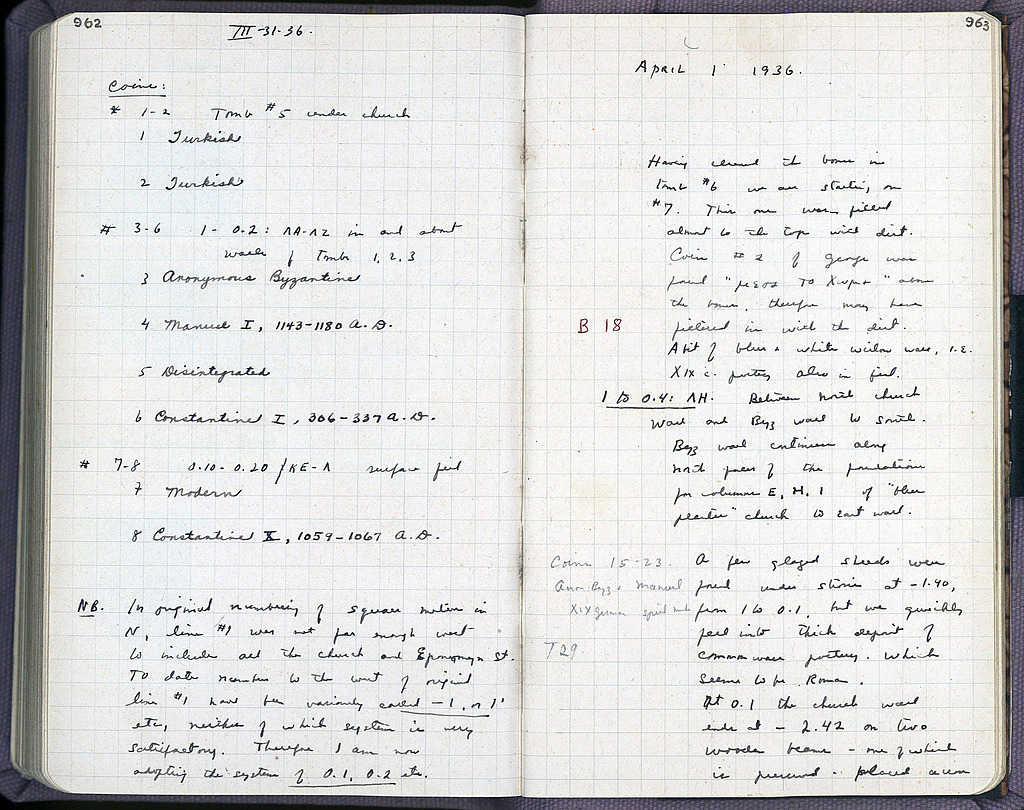 962
III-31-36.
Coins:
# 1-2 Tomb #5 under church
1 Turkish
2 Turkish
# 3-6 1-0.2: ΛΑ-ΛΖ in and about
walls of Tombs 1, 2, 3
3 Anonymous Byzantine
4 Manuel I, 1143-1180 A.D.
5 Disintegrated
6 Constantine I, 306-337 A.D.
# 7-8 0.10-0.20/ΚΕ-Λ surface fill
7 Modern
8 Constantine X, 1059-1067 A.D.
NB. In original numbering of square meters in
N, line #1 was not far enough west
to include all the church and Eponymon St.
To date numbers to the west of original
line #1 have been variously called -1, or 1'
etc, neither of which system is very
satisfactory. Therefore I am now
adopting the system of 0.1, 0.2 etc.
963
April 1 1936.
Having cleaned the bones in
tomb #6 we are starting on
#7. This one was filled
almost to the top with dirt.
Coin #2 of George was
found "μεσα το χωμα" above
the bones, therefore may have
filtered in with the dirt.
B 18
A bit of blue & white willow ware, i.e.
XIX c. pottery also in fill.
1 to 0.4: ΛΗ. Between north church
wall and Byz wall to south.
Byz wall continues along
north faces of the foundations
for columns E, H, I of "blue
plaster" church to east wall.
Coins 15-23.
Anon. Byz & Manuel
XIX German
T29
A few glazed sherds were
found under stones at -1.90,
from 1 to 0.1, but we quickly
fell into thick deposit of
common ware pottery. Which
seems to be Roman.
At 0.1 the church wall
ends at -2.42 on two
wooden beams - one of which
is preserved - placed